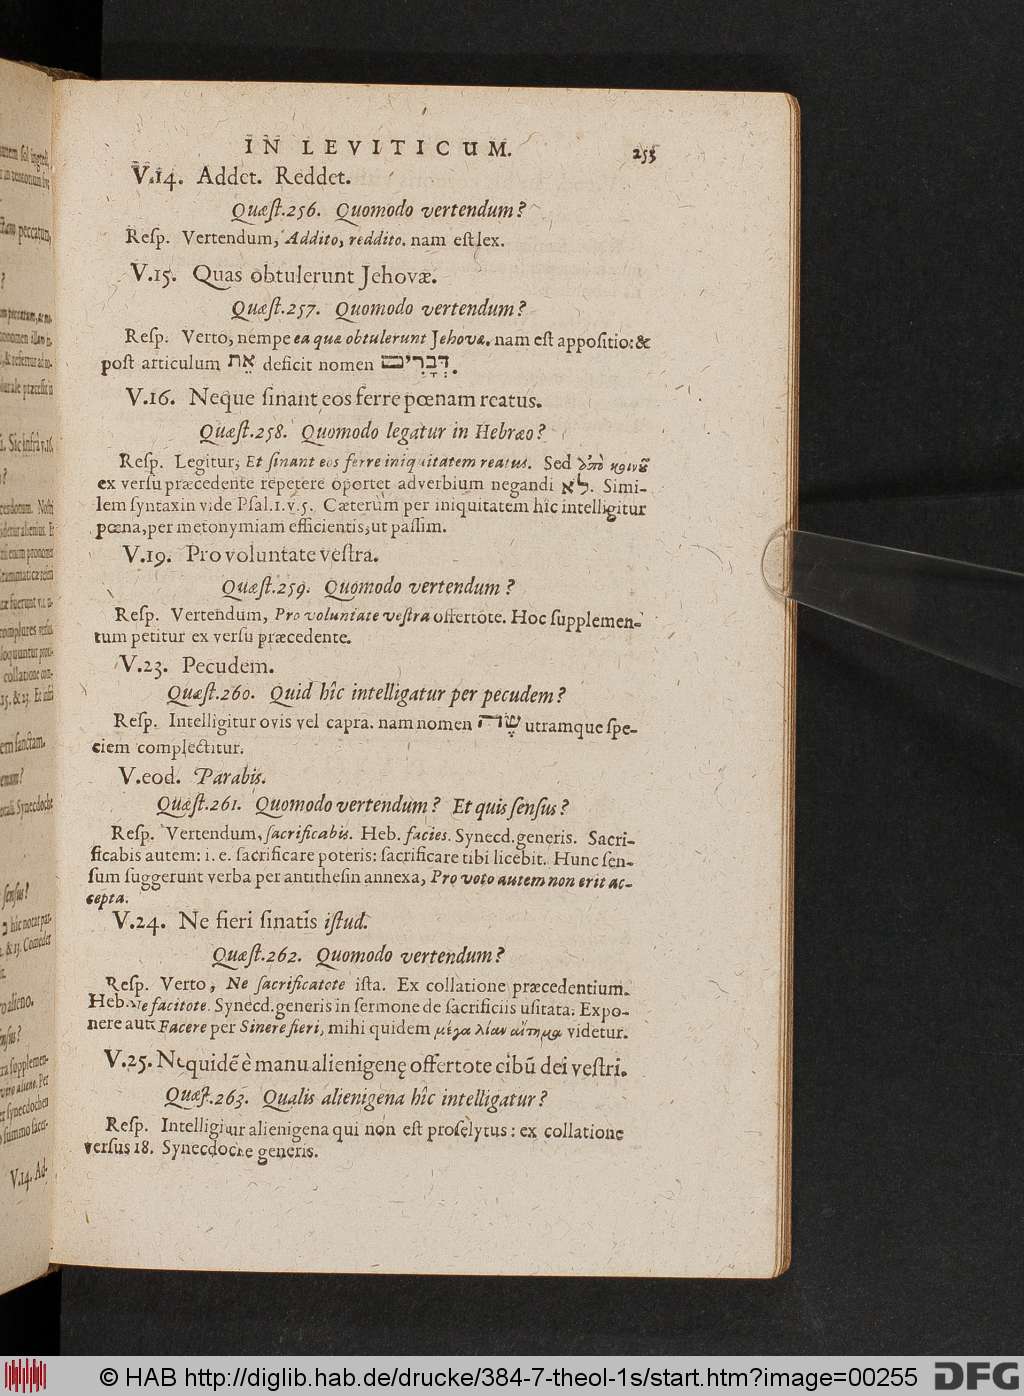 IN LEVITICUM. 253
V.14. Addet. Reddet.
Quæſt.256. Quomodo vertendum?
Reſp. Vertendum, Addito, reddito. nam eſt lex.
V.15. Quas obtulerunt Jehovæ.
Quæſt.257. Quomodo vertendum?
Reſp. Verto, nempe ea quæ obtulerunt Jehovæ. nam eſt appoſitio: &
poſt articulum אֵת deficit nomen דְּבָרִים.
V.16. Neque ſinant eos ferre pœnam reatus.
Quæſt.258. Quomodo legatur in Hebræo?
Reſp. Legitur, Et ſinant eos ferre iniquitatem reatus. Sed ἀπὸ κοινοῦ
ex verſu præcedente repetere oportet adverbium negandi לא. Simi-
lem ſyntaxin vide Pſal.1.v.5. Cæterùm per iniquitatem hîc intelligitur
pœna, per metonymiam efficientis, ut paſſim.
V.19. Pro voluntate veſtra.
Quæſt.259. Quomodo vertendum?
Reſp. Vertendum, Pro voluntate veſtra offertote. Hoc ſupplemen-
tum petitur ex verſu præcedente.
V.23. Pecudem.
Quæſt.260. Quid hîc intelligatur per pecudem?
Reſp. Intelligitur ovis vel capra. nam nomen שֶׂה utramque ſpe-
ciem complectitur.
V.eod. Parabis.
Quæſt.261. Quomodo vertendum? Et quis ſenſus?
Reſp. Vertendum, ſacrificabis. Heb. facies. Synecd.generis. Sacri-
ficabis autem: i. e. ſacrificare poteris: ſacrificare tibi licebit. Hunc ſen-
ſum ſuggerunt verba per antitheſin annexa, Pro voto autem non erit ac-
cepta.
V.24. Ne fieri ſinatis iſtud.
Quæſt.262. Quomodo vertendum?
Reſp. Verto, Ne ſacrificatote iſta. Ex collatione præcedentium.
Heb. Ne facitote. Synecd.generis in ſermone de ſacrificiis uſitata. Expo-
nere aut Facere per Sinere fieri, mihi quidem μέγα λίαν αἴτημα videtur.
V.25. Nequidē è manu alienigenę offertote cibū dei veſtri.
Quæſt.263. Qualis alienigena hîc intelligatur?
Reſp. Intelligitur alienigena qui non eſt proſelytus: ex collatione
verſus 18. Synecdoche generis.
© HAB http://diglib.hab.de/drucke/384-7-theol-1s/start.htm?image=00255
DFG